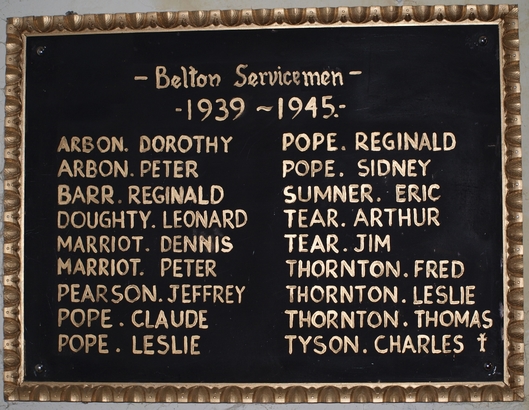 - Belton Servicemen -
- 1939 ~ 1945. -
ARBON. DOROTHY
ARBON. PETER
BARR. REGINALD
DOUGHTY. LEONARD
MARRIOT. DENNIS
MARRIOT. PETER
PEARSON. JEFFREY
POPE. CLAUDE
POPE. LESLIE
POPE. REGINALD
POPE. SIDNEY
SUMNER. ERIC
TEAR. ARTHUR
TEAR. JIM
THORNTON. FRED
THORNTON. LESLIE
THORNTON. THOMAS
TYSON. CHARLES †